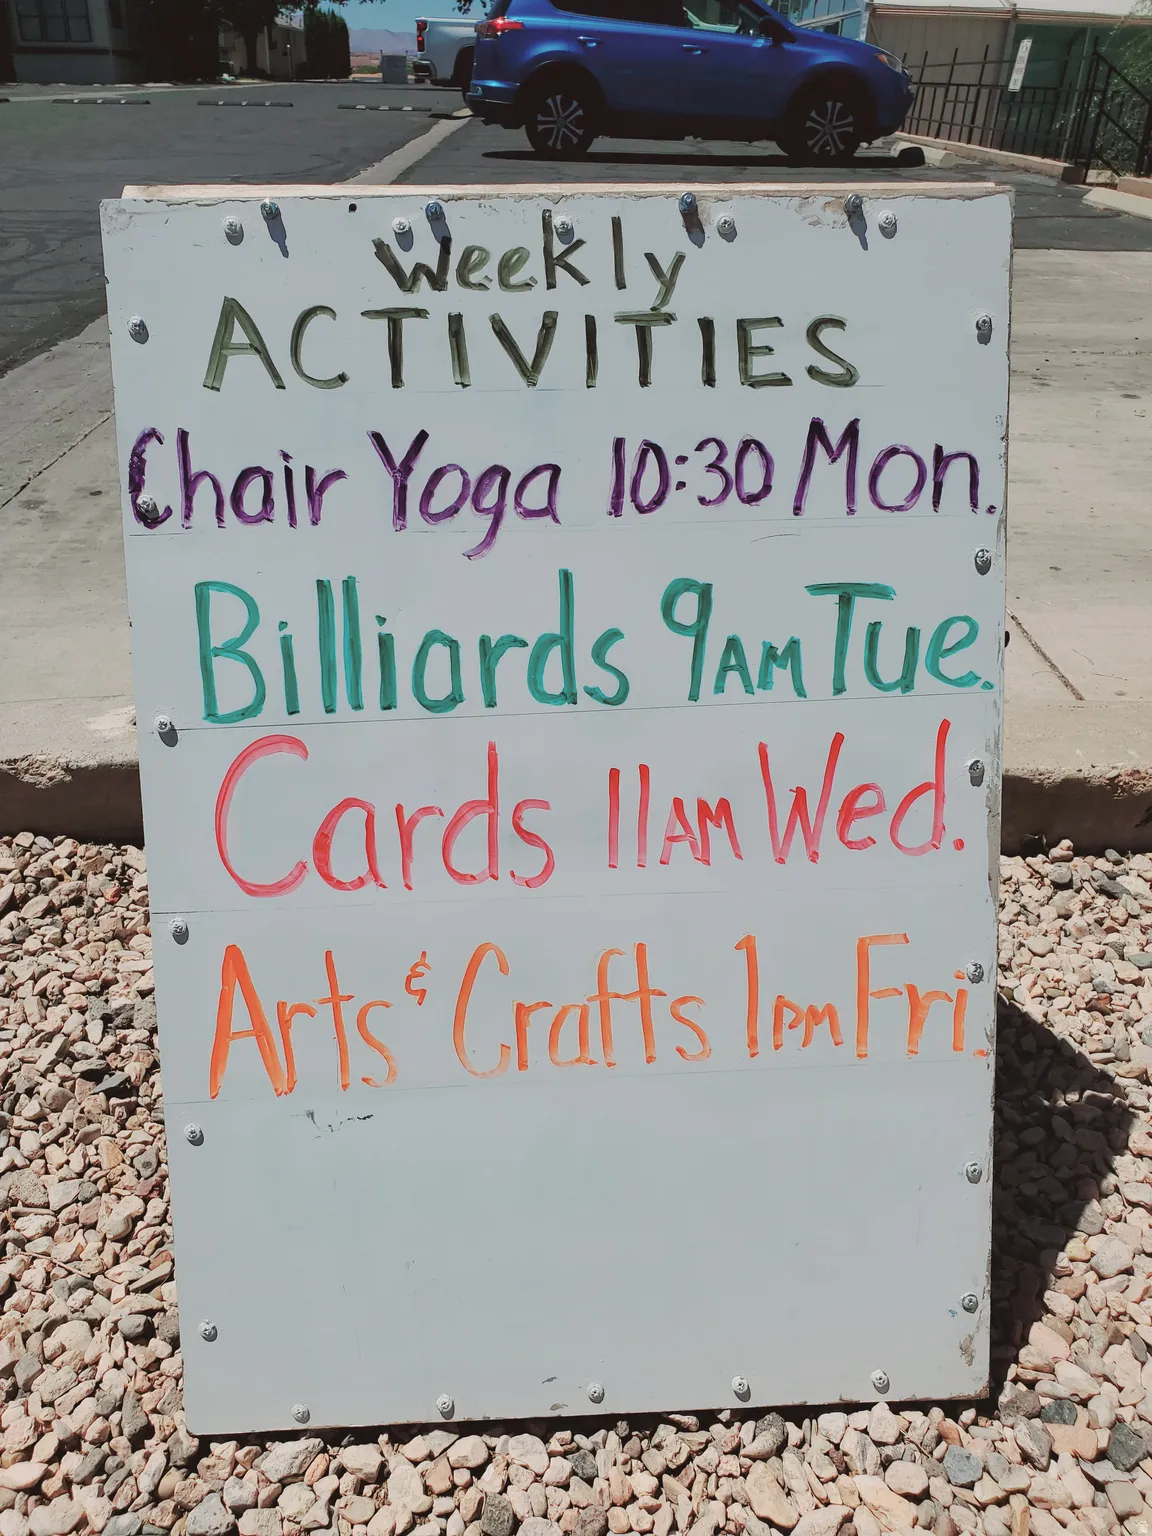 Weekly
ACTIVITIES
Chair Yoga 10:30 Mon.
Billiards 9AM Tue.
Cards 11AM Wed.
Arts & Crafts 1PM Fri.